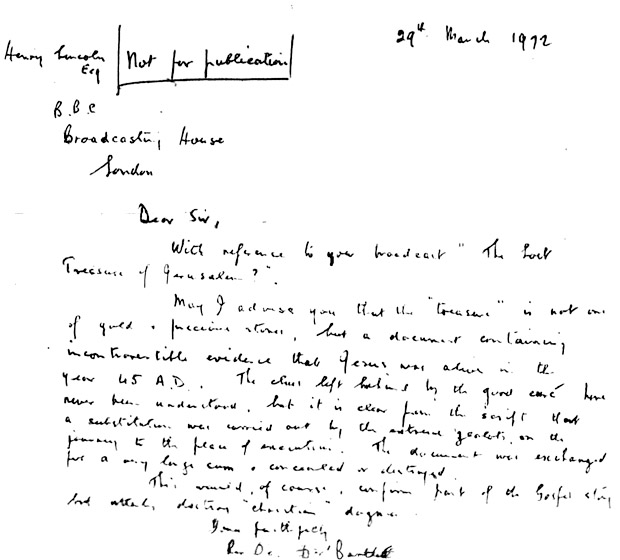 29th March 1972
Henry Lincoln
Esq
Not for publication
B.B.C
Broadcasting House
London
Dear Sir,
With reference to your broadcast "The Lost
Treasure of Jerusalem?".
May I advise you that the "treasure" is not one
of gold & precious stones, but a document containing
incontrovertible evidence that Jesus was alive in the
year 45 A.D. The clues left behind by the good curé have
never been understood, but it is clear from the script that
a substitution was carried out by the extreme zealots on the
journey to the place of execution. The document was exchanged
for a very large sum & concealed or destroyed.
This would, of course, confirm part of the Gospel story
but utterly destroy "christian" dogma.
Yours faithfully
Rev Dr.